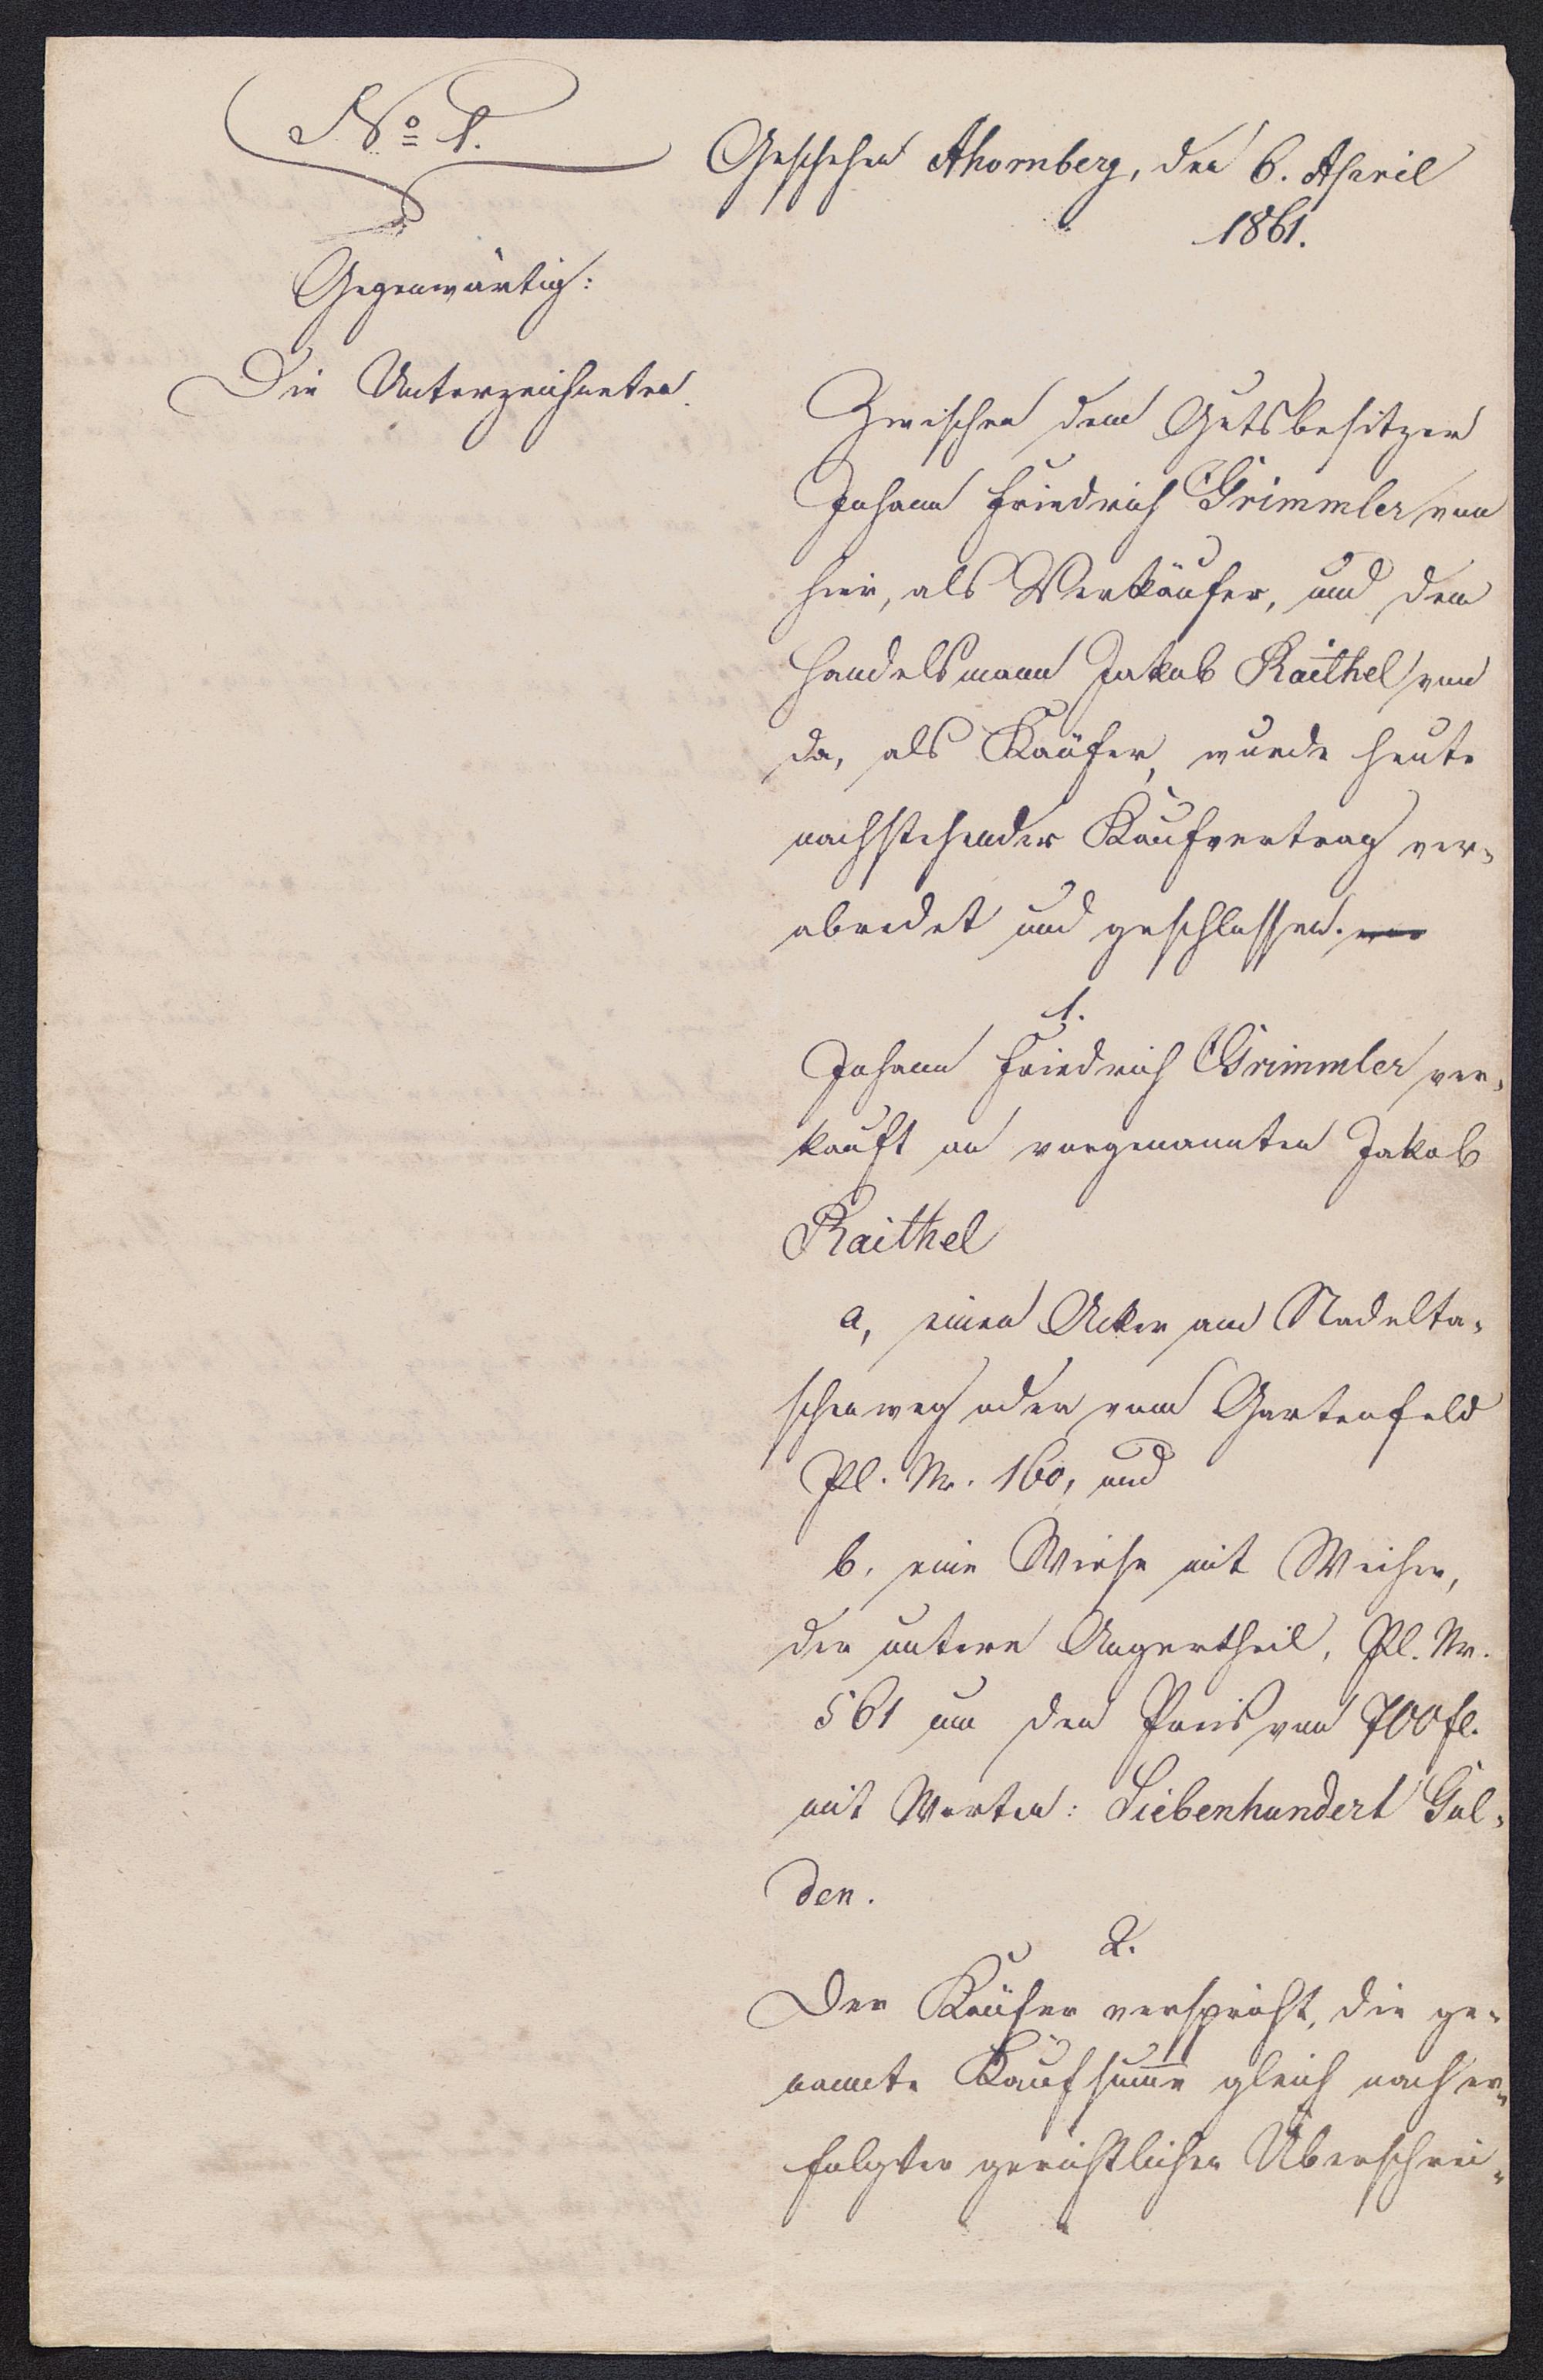 No 1.
Geschehen Ahornberg, den 6. April
1861.
Gegenwärtig:
Die Unterzeichneten.
Zwischen dem Gutsbesitzer
Johann Friedrich Grimmler von
hier, als Verkäufer, und dem
Handelsmann Jakob Raithel von
da, als Käufer, wurde heute
nachstehender Kaufvertrag ver=
abredet und geschlossen.
1.
Johann Friedrich Grimmler ver=
kauft an vorgenannten Jakob
Raithel
a, einen Acker am Stadelta=
schenweg oder vom Gartenfeld
Pl. Nr. 160, und
b, eine Wiese mit Weiher,
der untere Angertheil, Pl. Nr.
561 um den Preis von 700 fl.
mit Worten: Siebenhundert Gul=
den.
2.
Der Käufer verspricht, die ge=
nannte Kaufsumme gleich nach er=
folgter gerichtlicher Überschrei=